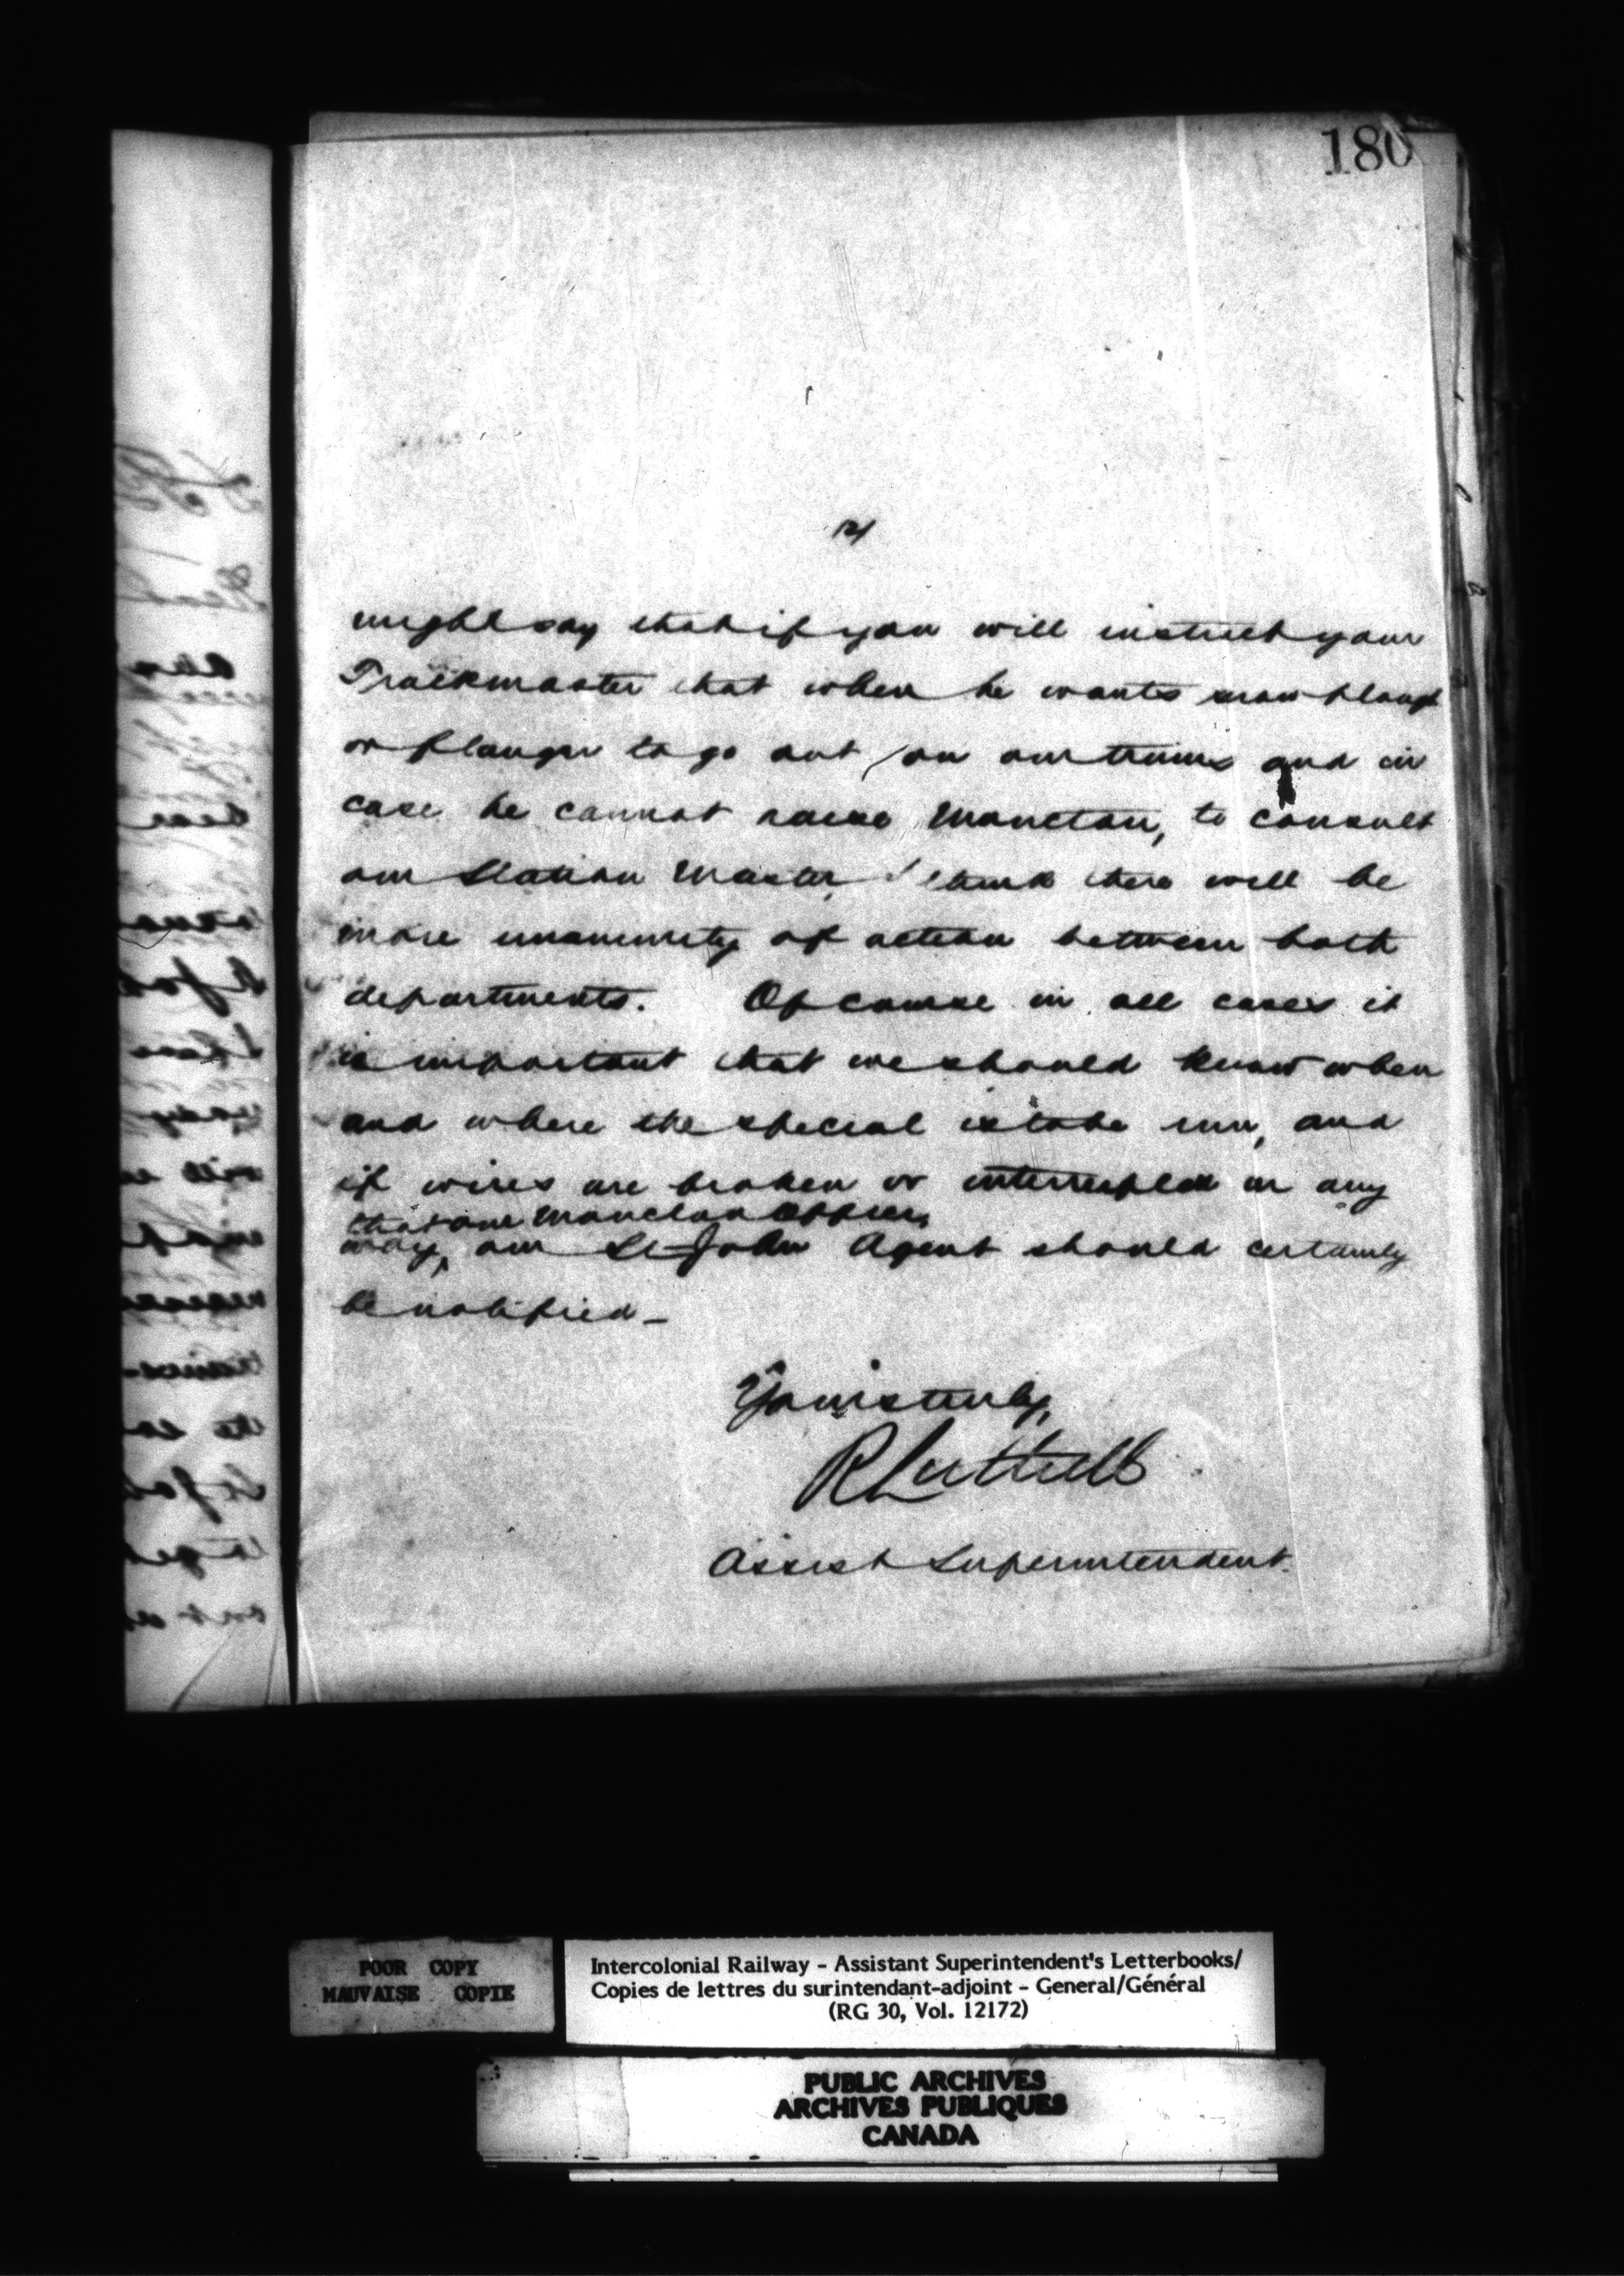 180
2/
might say that if you will instruct your
Trackmaster that when he wants snow plough
or flanger to go out on our trains and in
case he cannot raise Moncton, to consult
our Station Master I think there will be
more unanimity of action between both
departments. Of course in all cases it
is important that we should know when
and where the special is to be run, and
if wires are broken or interrupted in any
that our Moncton Office,
way, our St John Agent should certainly
be notified _
Yours truly,
R Luttrell
Assist Superintendent.
POOR COPY
MAUVAISE COPIE
Intercolonial Railway - Assistant Superintendent's Letterbooks/
Copies de lettres du surintendant-adjoint - General/Général
(RG 30, Vol. 12172)
PUBLIC ARCHIVES
ARCHIVES PUBLIQUES
CANADA